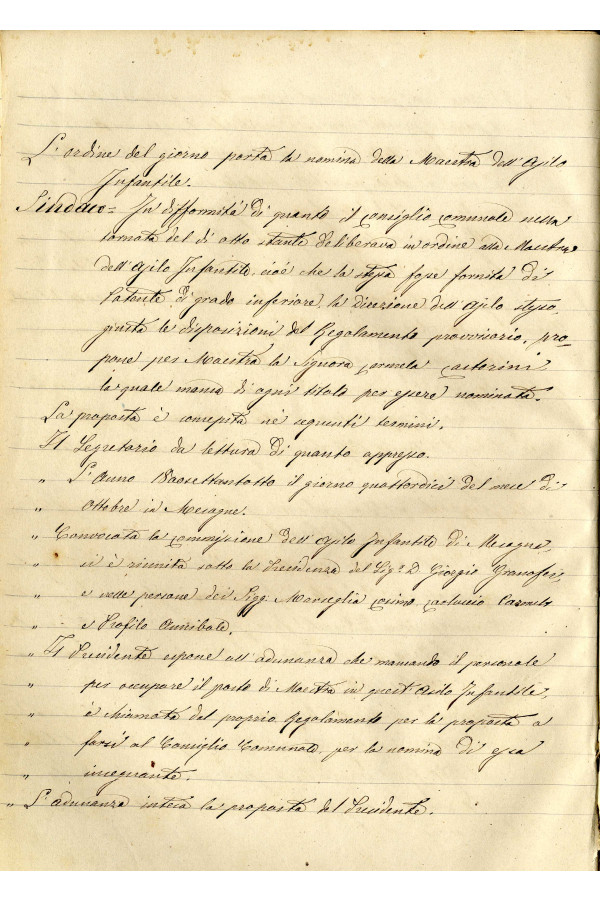 L'ordine del giorno porta la nomina della Maestra dell'Asilo
Infantile.
Sindaco = In difformità di quanto il Consiglio Comunale nella
tornata del dì otto stante deliberava in ordine alla Maestra
dell'Asilo Infantile, cioè che la stessa fosse fornita di
Patente di grado inferiore, la Direzione dell'Asilo stesso,
giusta le disposizioni del Regolamento provvisorio, pro-
pone per Maestra la Signora Carmela Castorini
la quale manca di ogni titolo per essere nominata.
La proposta è concepita ne' seguenti termini.
Il Segretario dà lettura di quanto appresso.
" L'Anno 18oosettantotto il giorno quattordici del mese di
" Ottobre in Mesagne.
" Convocata la Commissione dell'Asilo Infantile di Mesagne,
" si è riunita sotto la Presidenza del Sigr. D. Giorgio Granafei,
" e nelle persone dei Sigg. Marseglia Cosimo, Carluccio Carmelo
" e Profilo Annibale.
" Il Presidente espone all'adunanza che mancando il personale
" per occupare il posto di Maestra in quest'Asilo Infantile,
" è chiamata dal proprio Regolamento per la proposta a
" farsi al Consiglio Comunale, per la nomina di essa
" insegnante.
" L'adunanza intesa la proposta del Presidente.